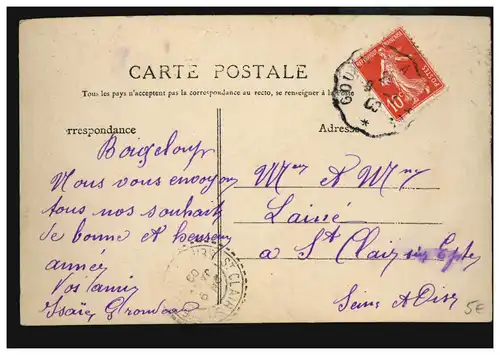 CARTE POSTALE
Tous les pays n'acceptent pas la correspondance au recto, se renseigner à la Poste
rrespondance
Adresse
Boisgeloup
Nous vous envoyon
tous nos souhait
de bonne et heureu
année
Vos amis
Isaïe
Mr et Mme
Lainé
a St Clair sur Epte
Seine et Oise
5€
GOU
ST CLAIR
POSTES
10c